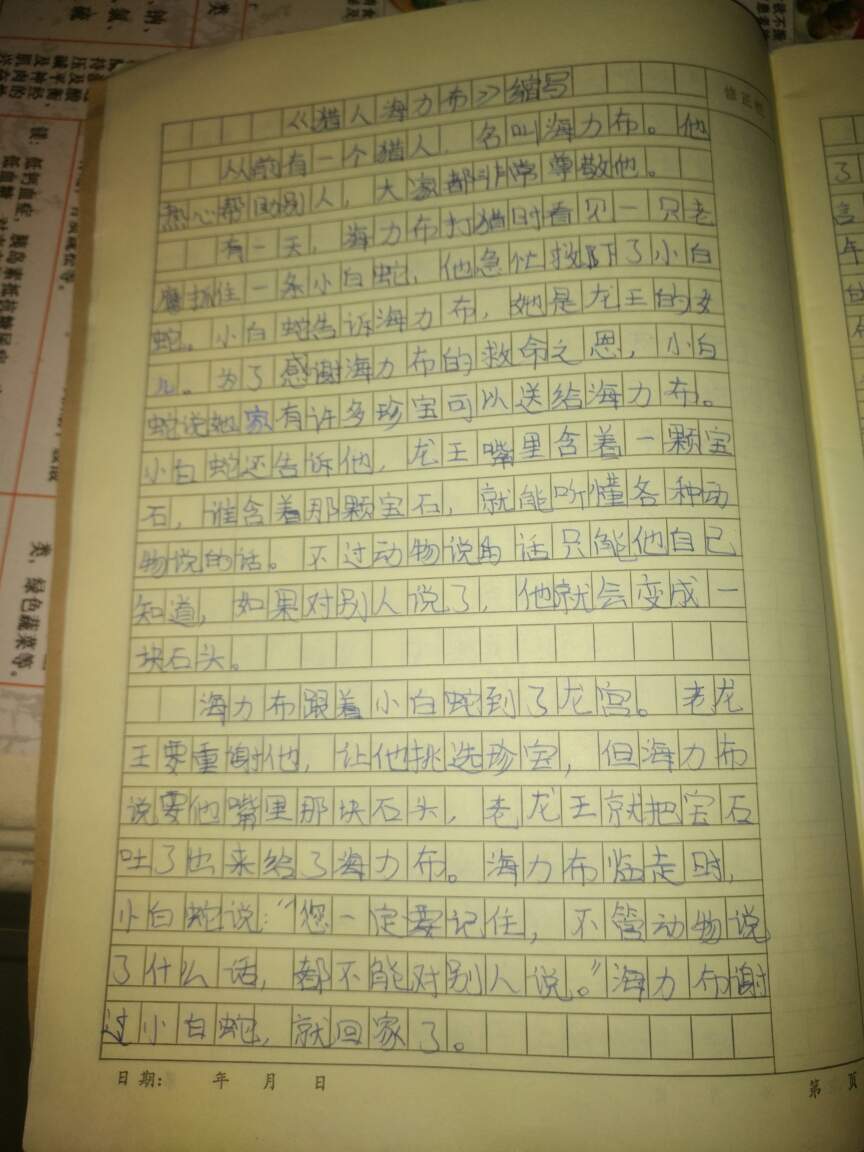 《猎人海力布》缩写
从前有一个猎人,名叫海力布。他
热心帮助别人,大家都非常尊敬他。
有一天,海力布打猎时看见一只老
鹰抓住一条小白蛇,他急忙救下了小白
蛇。小白蛇告诉海力布,她是龙王的女
儿。为了感谢海力布的救命之恩,小白
蛇说她家有许多珍宝可以送给海力布。
小白蛇还告诉他,龙王嘴里含着一颗宝
石,谁含着那颗宝石,就能听懂各种动
物说的话。不过动物说的话只能他自己
知道,如果对别人说了,他就会变成一
块石头。
海力布跟着小白蛇到了龙宫。老龙
王要重谢他,让他挑选珍宝,但海力布
说要他嘴里那块石头,老龙王就把宝石
吐了出来给了海力布。海力布临走时,
小白蛇说:“您一定要记住,不管动物说
了什么话,都不能对别人说。”海力布谢
过小白蛇,就回家了。
日期: 年 月 日
第 页
类,绿色蔬菜等。